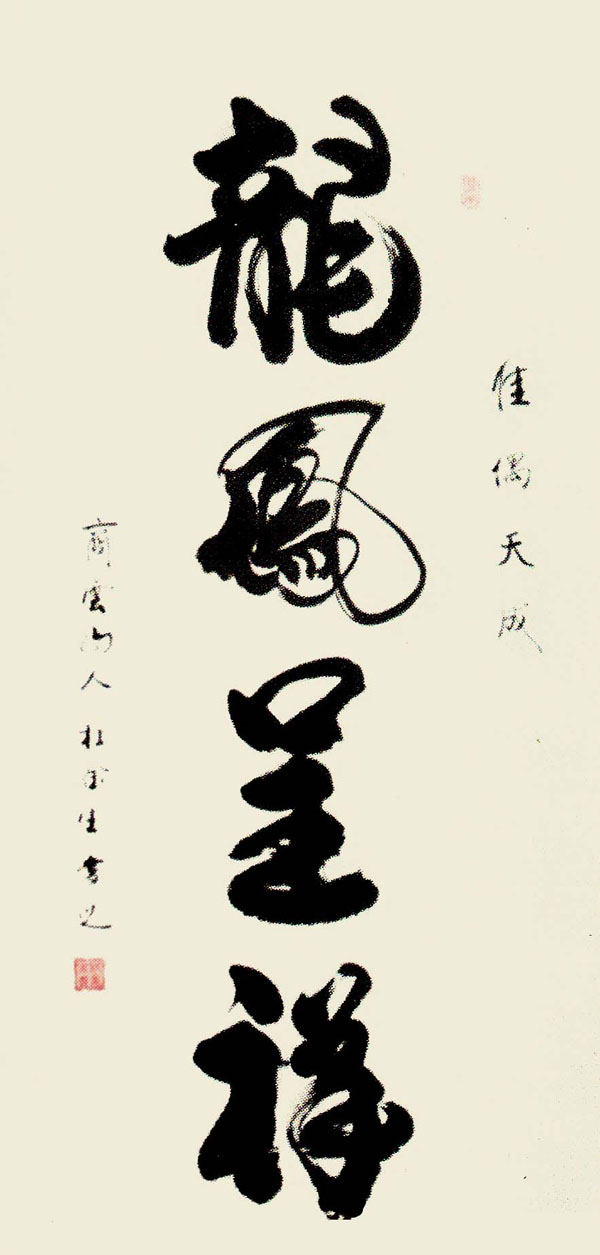 佳偶天成
龍鳳呈祥
商雲山人杜生書之